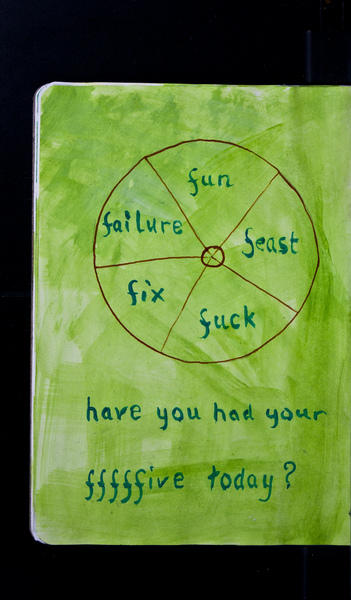 fun
failure
feast
fix
fuck
have you had your
fffffive today?